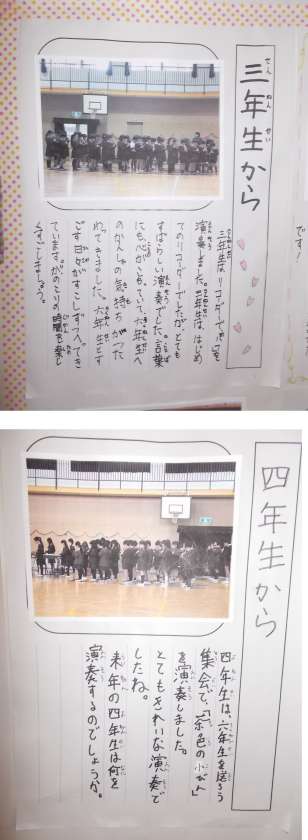 三年生から
三年生はリコーダーで
演奏しました。三年生は、はじめ
てのリコーダーでしたが、とても
すばらしい演奏でした。言葉
にも心がこもっていて、六年生へ
のかんしゃの気持ちがつた
わってきました。六年生とす
ごす日々がすこしずつへってき
ています。のこりの時間を楽し
くすごしましょう。
です!
四年生から
四年生は、六年生を送ろう
集会で、「茶色の小びん」
を演奏しました。
とてもきれいな演奏で
したね。
来年の四年生は何を
演奏するのでしょうか。